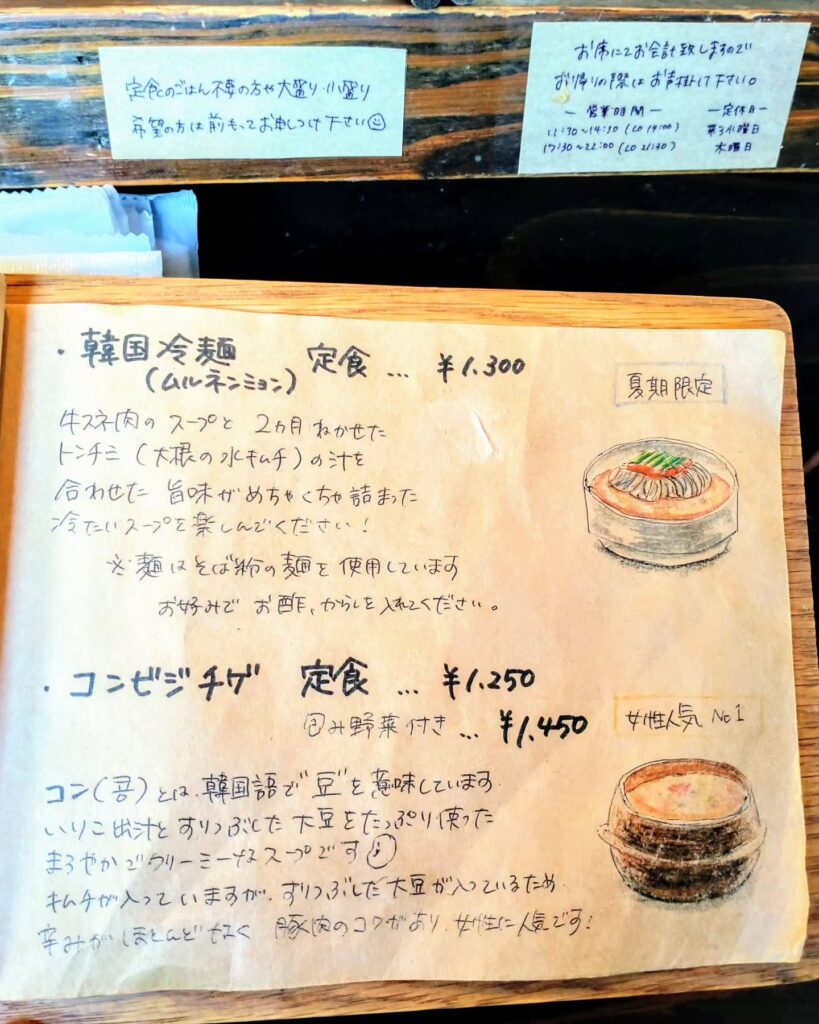 定食のごはん不要の方や大盛り・小盛り
希望の方は前もってお申しつけ下さい
お席にてお会計致しますので
お帰りの際はお声掛け下さい。
― 営業時間 ― ―定休日―
11:30〜14:30 (LO 14:00) 第3水曜日
17:30〜22:00 (LO 21:30) 木曜日
・韓国冷麺 定食 … ¥1.300
(ムルネンミョン)
夏期限定
牛スネ肉の スープと 2ヵ月 ねかせた
トンチミ (大根の水キムチ) の汁を
合わせた 旨味がめちゃくちゃ詰まった
冷たいスープを楽しんでください!
※麺はそば粉の麺を使用しています
お好みで お酢、からしを入れてください。
・コンビジチゲ 定食 … ¥1.250
包み野菜付き … ¥1.450
女性人気 No1
コン(콩)とは、韓国語で"豆"を意味しています
いりこ出汁とすりつぶした大豆をたっぷり使った
まろやかでクリーミーなスープです
キムチが入っていますが、すりつぶした大豆が入っているため
辛みがほとんどなく 豚肉のコクがあり、女性に人気です!